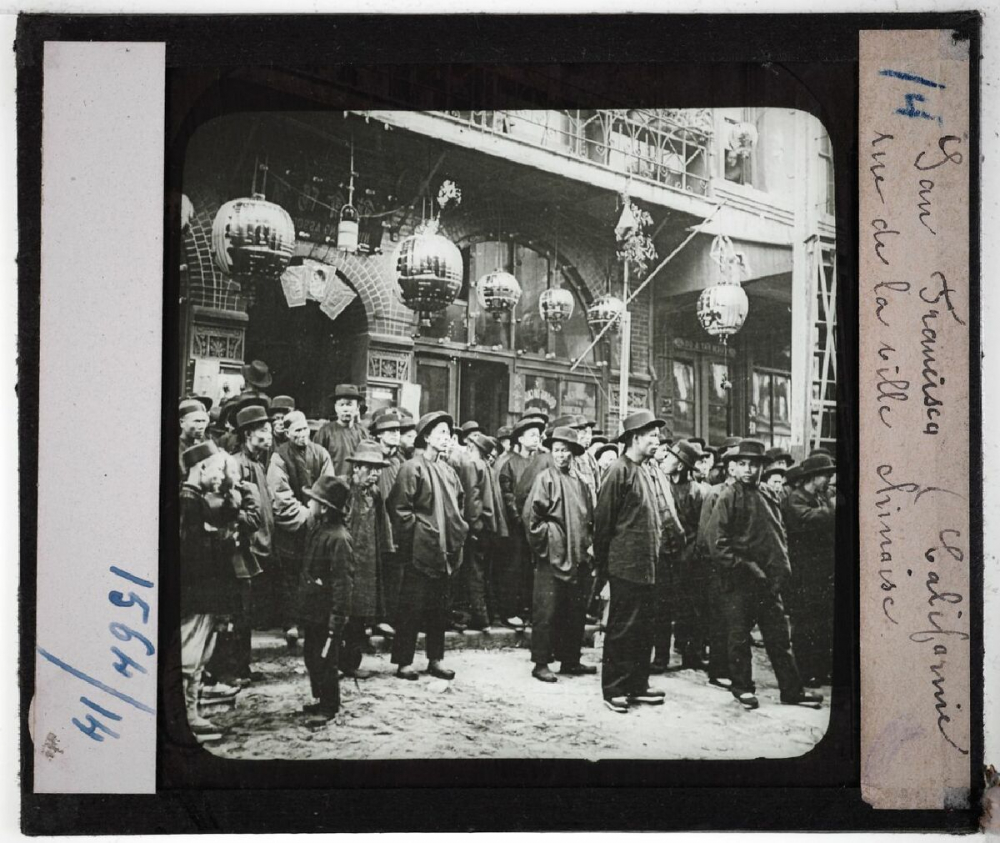 14
San Francisco (Californie
rue de la ville chinoise
1564
14/